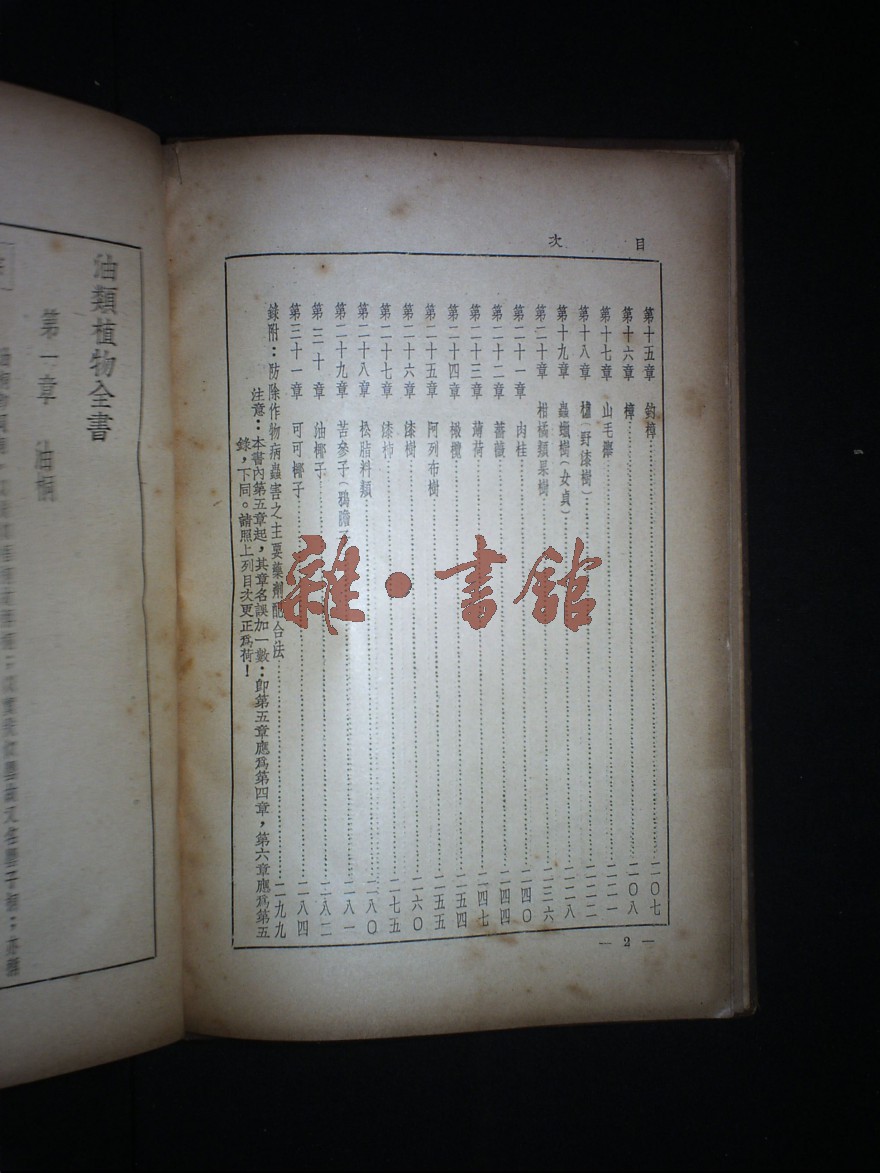 目次
第十五章　釣樟……二〇七
第十六章　樟……二〇八
第十七章　山毛櫸……二二一
第十八章　櫨(野漆樹)……二二二
第十九章　蟲蠟樹(女貞)……二二八
第二十章　柑橘類果樹……二三六
第二十一章　肉桂……二四〇
第二十二章　薔薇……二四四
第二十三章　薄荷……二四七
第二十四章　橄欖……二五四
第二十五章　阿列布樹……二五五
第二十六章　漆樹……二六〇
第二十七章　漆柿……二七五
第二十八章　松脂料類……二八〇
第二十九章　苦參子(鴉膽……二八一
第三十章　油椰子……二八二
第三十一章　可可椰子……二八四
錄附：防除作物病蟲害之主要藥劑配合法……二九九
注意：本書內第五章起，其章名誤加一數：即第五章應爲第四章，第六章應爲第五
錄，下同。請照上列目次更正爲荷！
— 2 —
油類植物全書
第一章　油桐
雜·書館